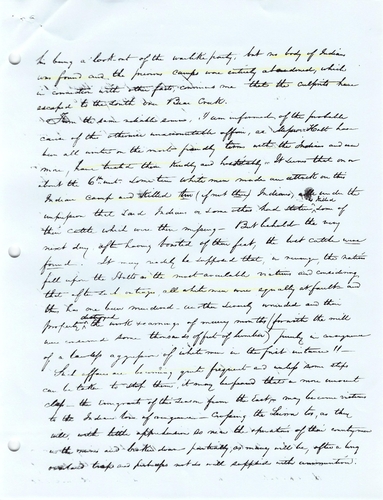 In being a lookout of the warlike party, but no body of Indians
was found and the previous camps were entirely abandoned, which
in connection with other facts, convinces me that the culprits have
escaped to the South on Bear Creek.
From the same reliable source, I am informed of the probable
cause of the otherwise unaccountable affair, as Messrs Hall have
been all winter on the most friendly terms with the Indians and
have treated them kindly and It seems that on or
about the 6th inst Some ten white men made an attack on the
Indian Camp and killed two (if not three) Indians, under the
supposition that said Indians or some other had stolen some of
their cattle which were then missing - But behold the very
next day, after having boasted of their feat, the lost cattle were
found. It may easily be supposed that, in revenge, the natives
fell upon the Halls as the most available victims and considering
that after such outrage, all white men were equally at fault and
thus has one been murdered - another severely wounded and their
property destroyed, the work & earnings of many months (for with the mill
were consumed some thousands of feet of lumber) purely in consequence
of a lawless aggression of white men in the first instance!!
Such affairs are becoming quite frequent and unless some steps
can be taken to stop them, it may be feared that a more
class - the emigrants of the season from the East may become victims
to the Indian law of vengeance - Crossing the Sierra too, as they
will, with little apprehension so near the operations of their countrymen
with the means and broken down - partially, as many will be, after a long
overland trip and perhaps not so well supplied with ammunition.